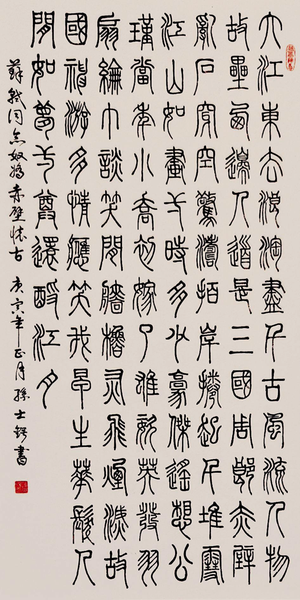 大江東去浪淘盡千古風流人物
故壘西邊人道是三國周郎赤壁
亂石穿空驚濤拍岸捲起千堆雪
江山如畫一時多少豪傑遙想公
瑾當年小喬初嫁了雄姿英發羽
扇綸巾談笑間檣櫓灰飛煙滅故
國神游多情應笑我早生華髮人
間如夢一尊還酹江月
蘇軾詞念奴嬌赤壁懷古 庚寅年正月孫士書